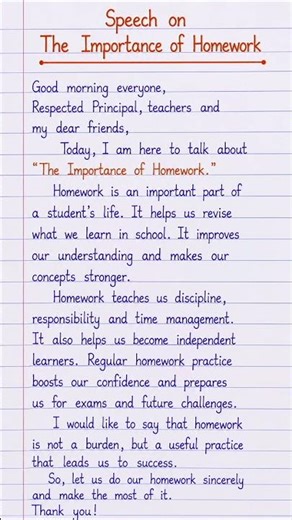 Speech on
The Importance of Homework
Good morning everyone,
Respected Principal, teachers and
my dear friends,
Today, I am here to talk about
“The Importance of Homework.”
Homework is an important part of
a student’s life. It helps us revise
what we learn in school. It improves
our understanding and makes our
concepts stronger.
Homework teaches us discipline,
responsibility and time management.
It also helps us become independent
learners. Regular homework practice
boosts our confidence and prepares
us for exams and future challenges.
I would like to say that homework
is not a burden, but a useful practice
that leads us to success.
So, let us do our homework sincerely
and make the most of it.
Thank you!